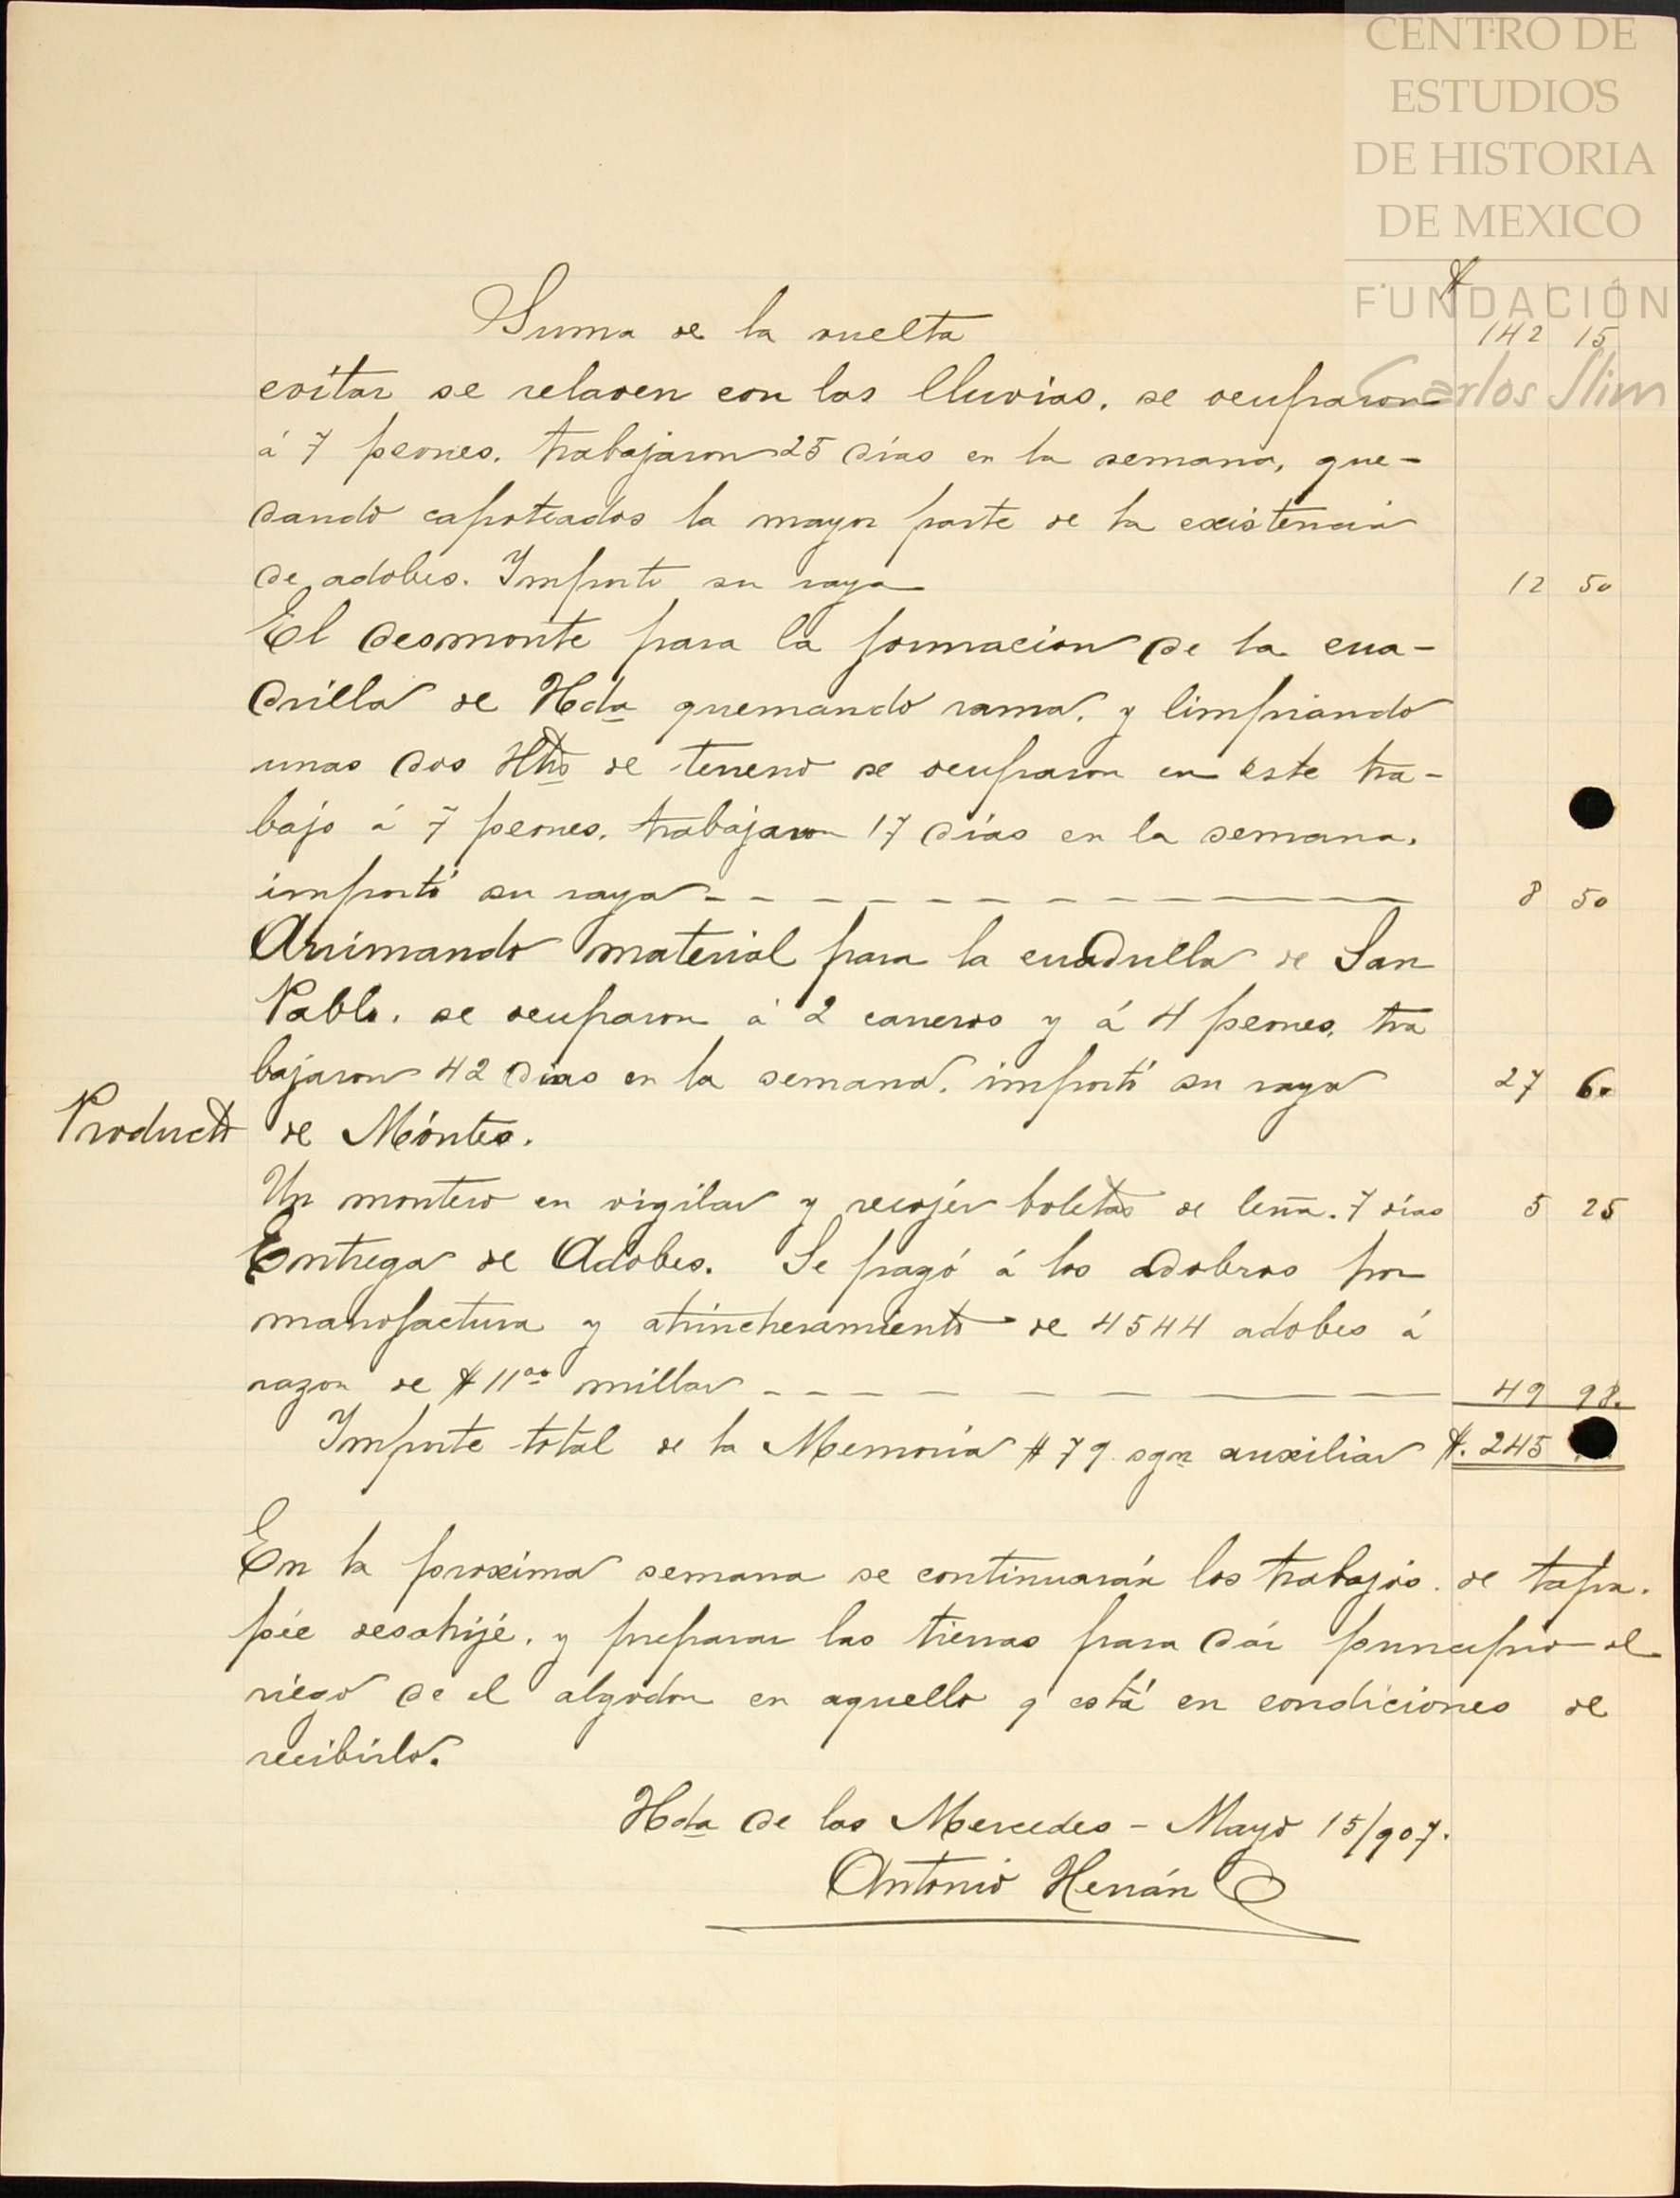 CENTRO DE
ESTUDIOS
DE HISTORIA
DE MEXICO
FUNDACIÓN
Carlos Slim
$
Suma de la vuelta 142 15
evitar se relaven con las lluvias. se ocuparon
á 7 peones. trabajaron 25 días en la semana, que-
dando capoteados la mayor parte de la existencia
de adobes. Importó su raya 12 50
El desmonte para la formacion de la cua-
drilla de Hda quemando rama. y limpiando
unas dos Hts de terreno se ocuparon en este tra-
bajo á 7 peones. trabajaron 17 días en la semana.
importó su raya 8 50
Arrimando material para la cuadrilla de San
Pablo. se ocuparon á 2 carreros y á 4 peones. tra
bajaron 42 dias en la semana. importó su raya 27 60
Producto de Móntes.
Un montero en vigilar y recojér boletas de leña. 7 días 5 25
Entrega de Adobes. Se pagó á los adobros por
manofactura y atrincheramiento de 4544 adobes á
razon de $ 11oo millar 49 98.
Importe total de la Memoria # 79 sgn auxiliar $. 245
En la proxima semana se continuarán los trabajos. de tapa.
pée desahijé. y preparar las tierras para dár principio el
riego de el algodon en aquello q está en condiciones de
recibirlo.
Hda de las Mercedes - Mayo 15/907.
Antonio Hernán